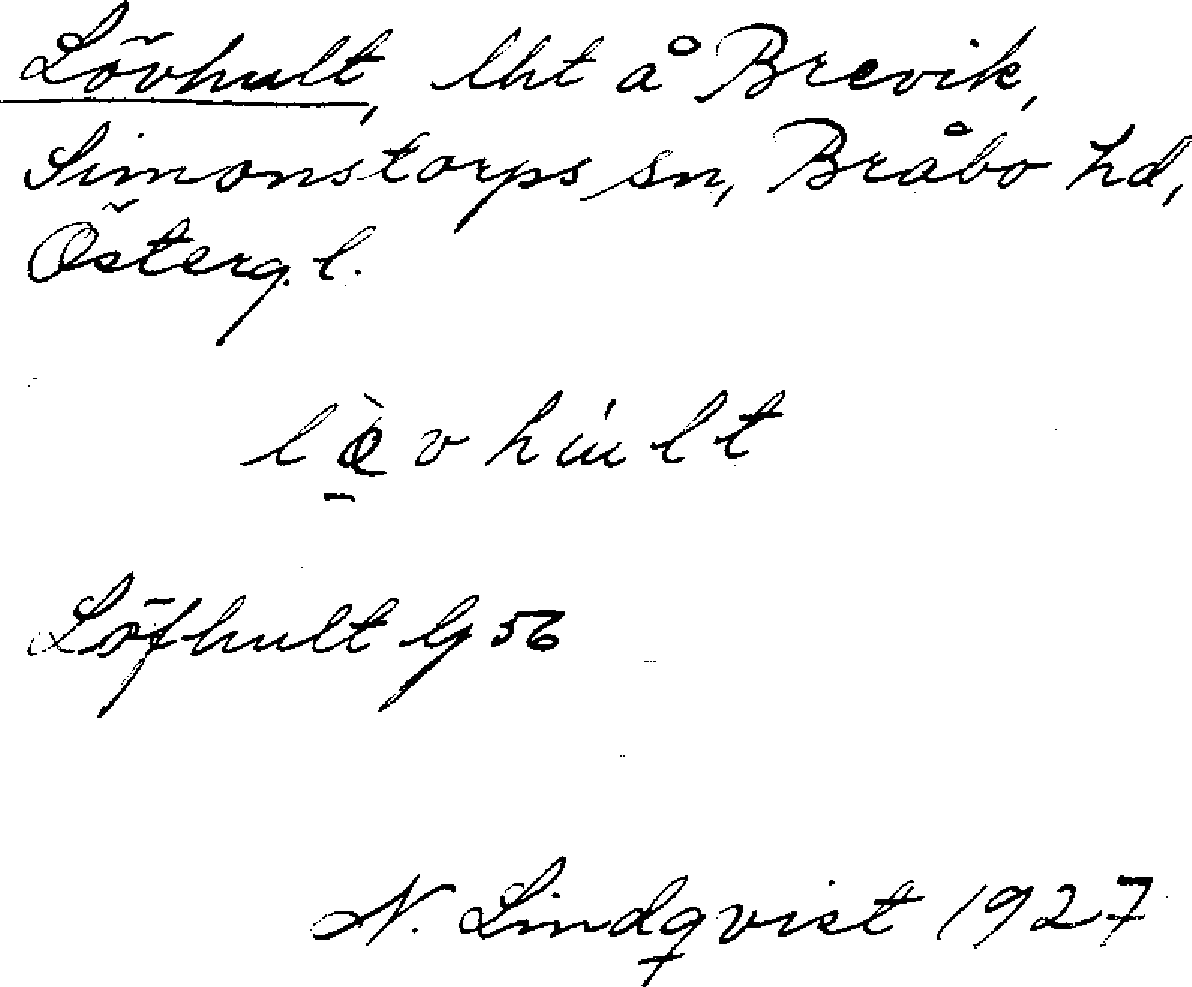 Lövhult, lht å Brevik,
Simonstorps sn, Bråbo hd,
Österg. l.
Löfhult Gs 56
N. Lindqvist 1927